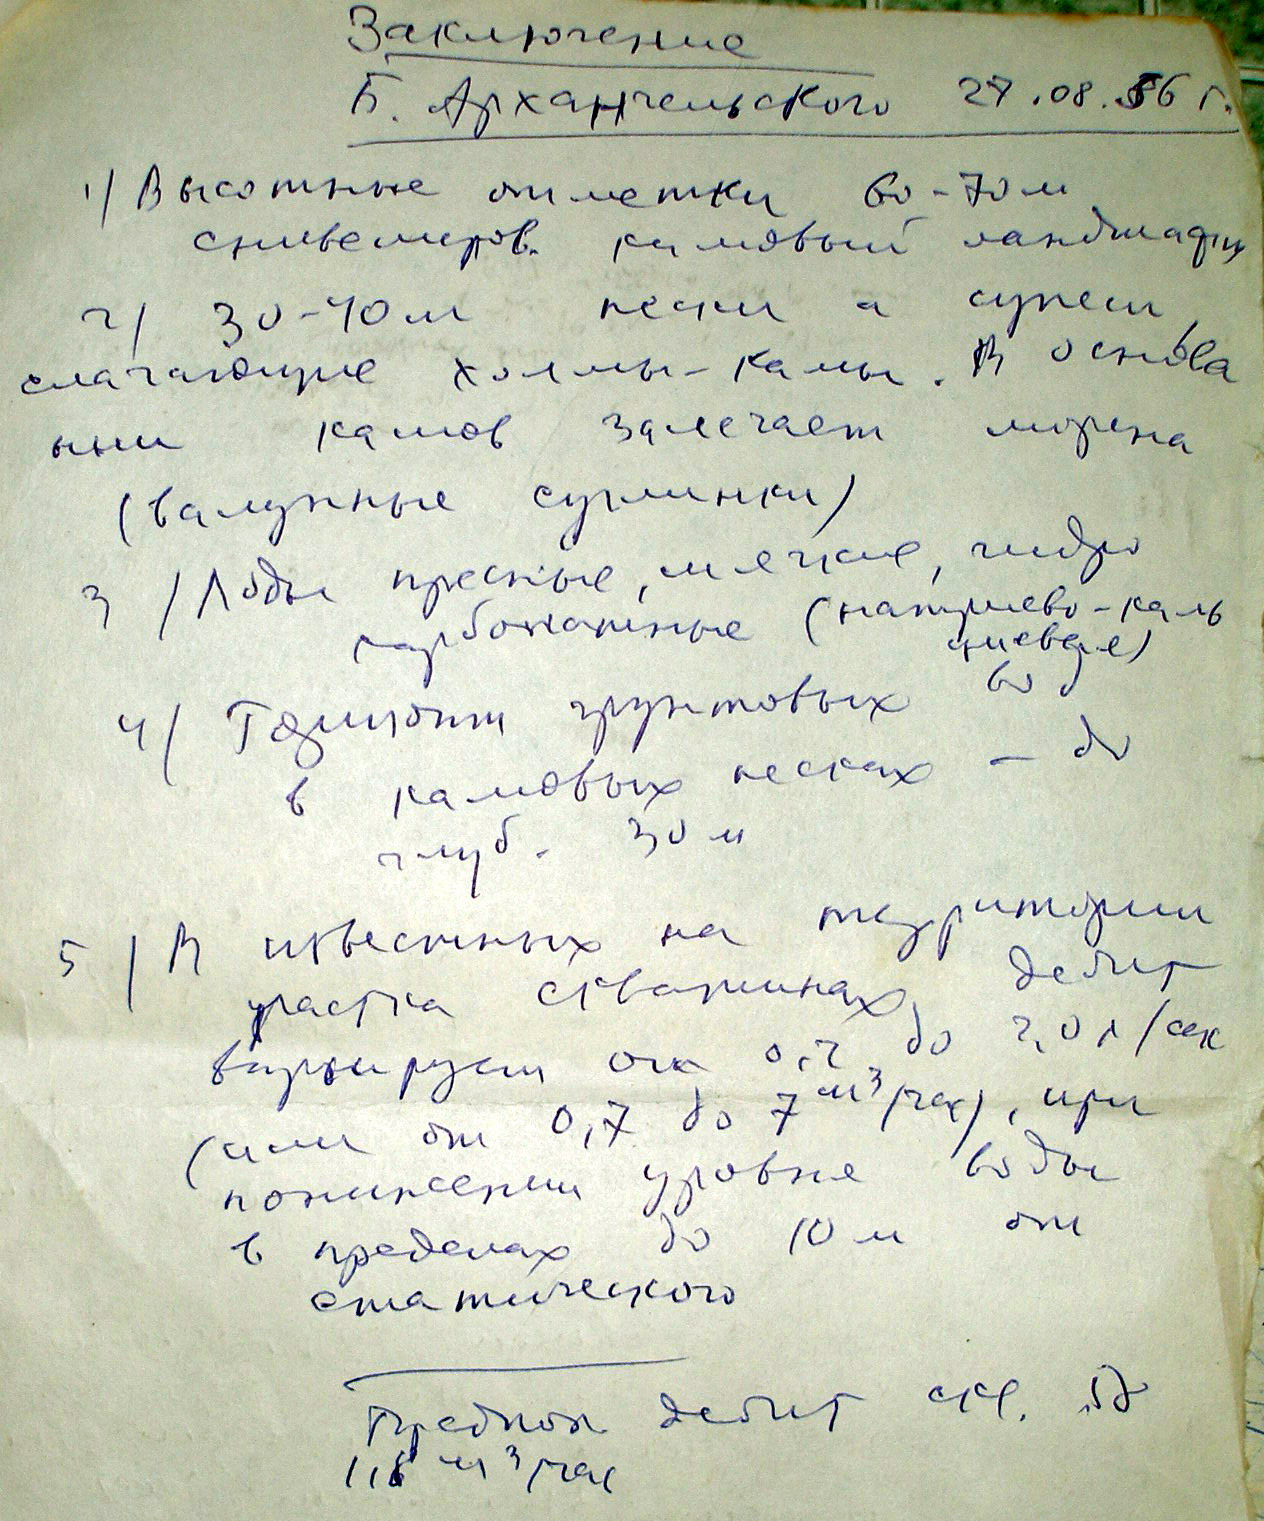 Заключение
Б. Архангельского 27.08.86 г.
1) Высотные отметки 60-70м
снивелиров. камовый ландшафт
2) 30-40м пески и супеси
слагающие холмы-камы. В основа
нии камов залегает морена
(валунные суглинки)
3) Воды пресные, мягкие, гидро
карбонатные (натриево-каль
циевые)
4) Горизонт грунтовых вод
в камовых песках - до
глуб. 30м
5) В известных на территории
участка скважинах, дебит
варьирует от 0,2 до 2,0 л/сек
(или от 0,7 до 7 м3/час), при
понижении уровня воды
в пределах до 10м от
статического
дебит скв.
1,8 м3/час